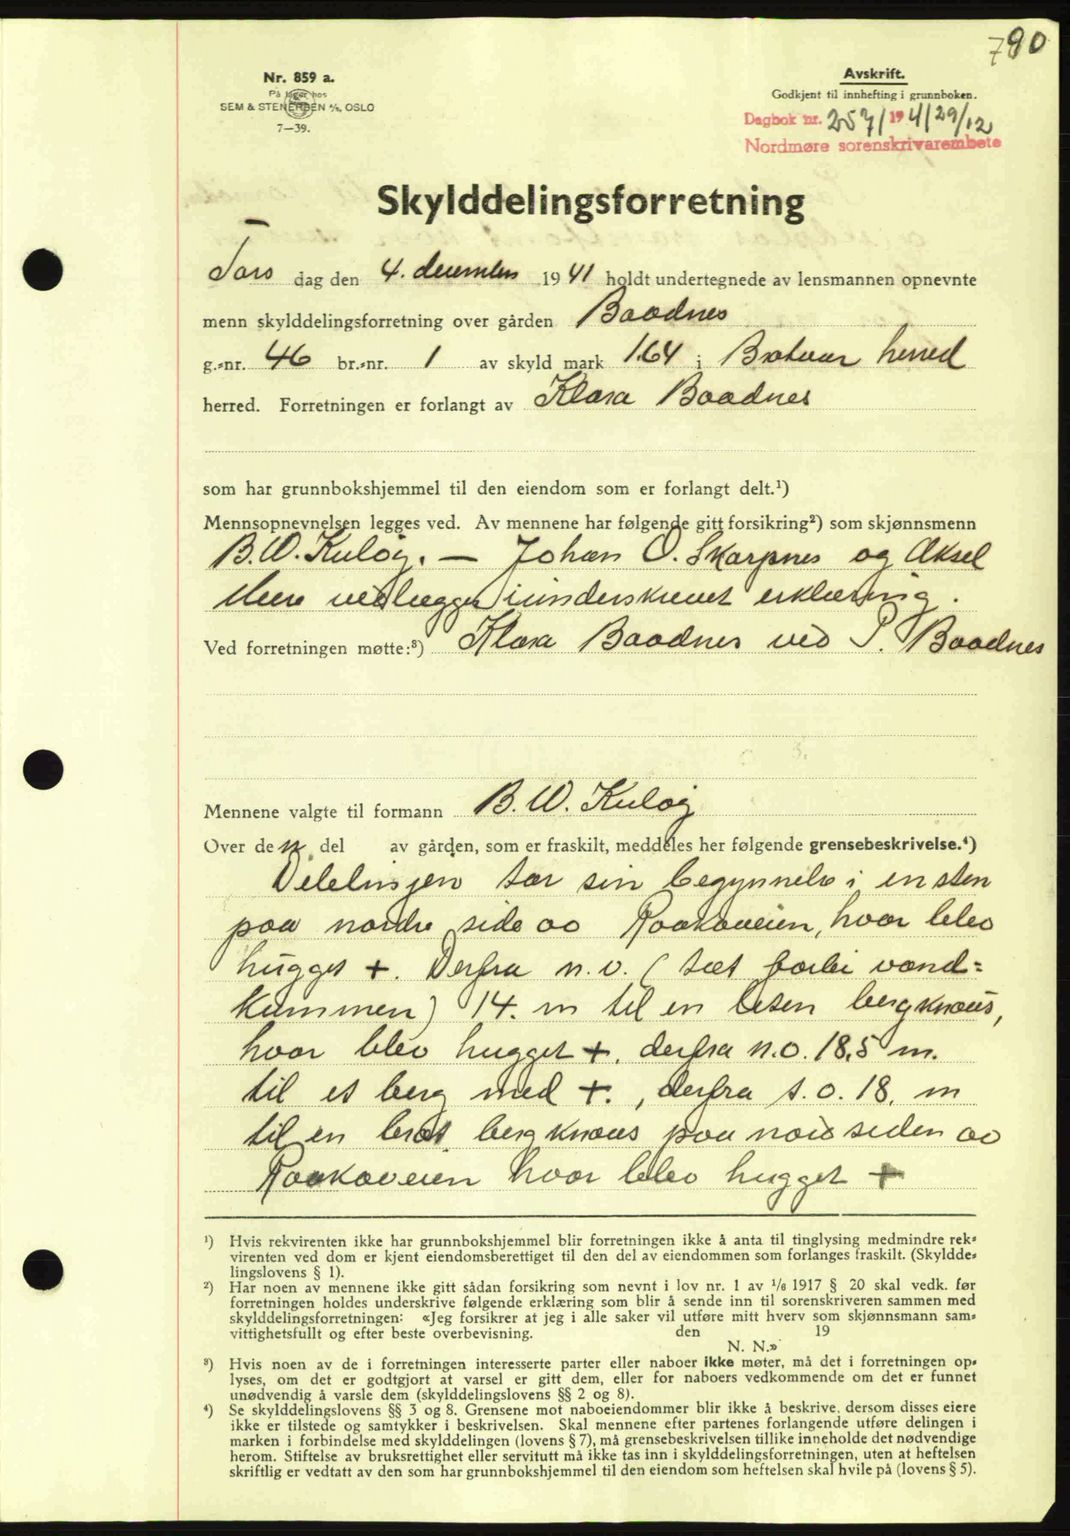 790
Nr. 859 a.
På lager hos
SEM & STENERSEN A/S, OSLO
7—39.
Avskrift.
Godkjent til innhefting i grunnboken.
Dagbok nr. 257/194/29/12
Nordmøre sorenskrivarembete
Skylddelingsforretning
Tors dag den 4. december 1941 holdt undertegnede av lensmannen opnevnte
menn skylddelingsforretning over gården Baadnes
g.-nr. 46 br.-nr. 1 av skyld mark 1.64 i Bratvær herred
herred. Forretningen er forlangt av Klara Baadnes
som har grunnbokshjemmel til den eiendom som er forlangt delt.¹)
Mennsopnevnelsen legges ved. Av mennene har følgende gitt forsikring²) som skjønnsmenn
B.W. Kuløy. — Johan O. Skarpnes og Aksel
vedlegger underskrevet erklæring.
Ved forretningen møtte:³) Klara Baadnes ved P. Baadnes
Mennene valgte til formann B.W. Kuløy
Over den del av gården, som er fraskilt, meddeles her følgende grensebeskrivelse.⁴)
Delelinjen tar sin begynnelse i en sten
paa nordre side av Raakaveien, hvor blev
hugget +. Derfra n.v. (tæt forbi vand-
kummen) 14. m til en liten bergknaus,
hvor blev hugget +. derfra n.o. 18,5 m.
til et berg med +., derfra s.o. 18. m
til en brat bergknaus paa nordsiden av
Raakaveien hvor blev hugget +
¹) Hvis rekvirenten ikke har grunnbokshjemmel blir forretningen ikke å anta til tinglysing medmindre rek-
virenten ved dom er kjent eiendomsberettiget til den del av eiendommen som forlanges fraskilt. (Skyldde-
lingslovens § 1).
²) Har noen av mennene ikke gitt sådan forsikring som nevnt i lov nr. 1 av 1/6 1917 § 20 skal vedk. før
forretningen holdes underskrive følgende erklæring som blir å sende inn til sorenskriveren sammen med
skylddelingsforretningen: «Jeg forsikrer at jeg i alle saker vil utføre mitt hverv som skjønnsmann sam-
vittighetsfullt og efter beste overbevisning. den 19
N. N.»
³) Hvis noen av de i forretningen interesserte parter eller naboer ikke møter, må det i forretningen op-
lyses, om det er godtgjort at varsel er gitt dem, eller for naboers vedkommende om det er funnet
unødvendig å varsle dem (skylddelingslovens §§ 2 og 8).
⁴) Se skylddelingslovens §§ 3 og 8. Grensene mot naboeiendommer blir ikke å beskrive, dersom disses eiere
ikke er tilstede og samtykker i beskrivelsen. Skal mennene efter partenes forlangende utføre delingen i
marken i forbindelse med skylddelingen (lovens § 7), må grensebeskrivelsen tillike inneholde det nødvendige
herom. Stiftelse av bruksrettighet eller servitutt må ikke tas inn i skylddelingsforretningen, uten at heftelsen
skriftlig er vedtatt av den som har grunnbokshjemmel til den eiendom som heftelsen skal hvile på (lovens § 5).